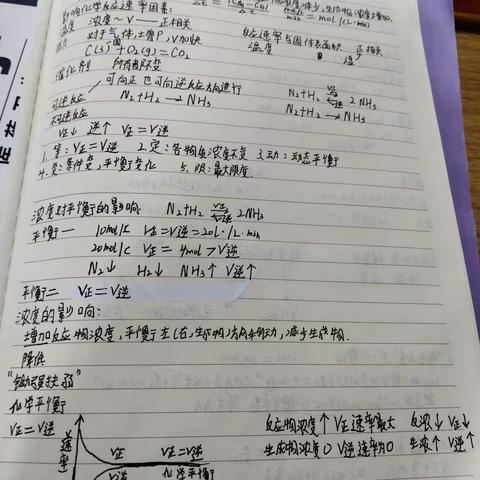 影响化学反应速率因素:
温度 浓度~V 正相关
对于气体,土曾P,V加快
反应速率与固体表面积 正相关
温度
C(s)+O₂(g)=CO₂
催化剂
可向正也可向逆反应方向进行
可逆反应 N₂+H₂ → NH₃ N₂+H₂ 2NH₃
不可逆反应 N₂+H₂ → NH₃
V正↓ 逆↑ V正=V逆
1.等:V正=V逆 2.定:各物质浓度不变 3.动:动态平衡
4.变:条件变,平衡变化 5.限:最大限度
浓度对平衡的影响 N₂+H₂ V正 V逆 2NH₃
平衡一 10mol/L V正=V逆=20L·/L·min
20mol/L V正= 4mol>V逆
N₂↓ H₂↓ NH₃↑ V逆↑
平衡二 V正=V逆
浓度的影响:
土曾加反应物浓度,平衡
降低
化学平衡
V正=V逆
反应物浓度↑ V正速率最大 反浓↓ V正↓
生成物浓度0 V逆速率为0 生浓↑ V逆↑
速率 V正 V正=V逆
V逆 化学平衡